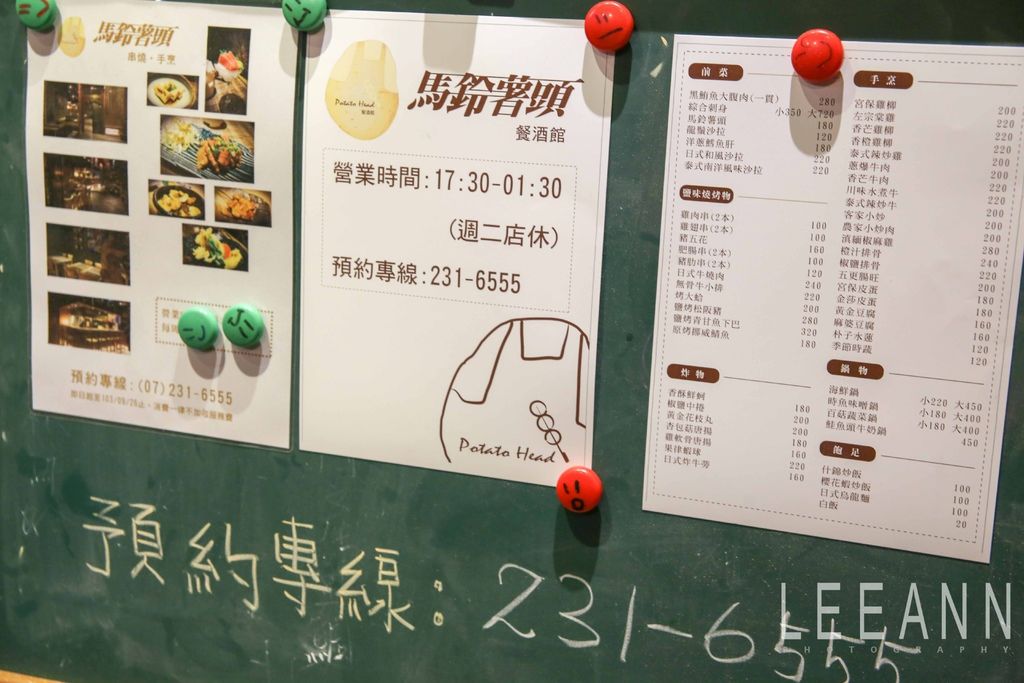 馬鈴薯頭
串燒・手烹
預約專線:(07)231-6555
即日起至103/09/26止,消費一律不加收服務費
Potato Head
馬鈴薯頭
餐酒館
營業時間:17:30-01:30
(週二店休)
預約專線:231-6555
Potato Head
前菜
黑鮪魚大腹肉(一貫) 280
綜合刺身 小350 大720
馬鈴薯頭 180
龍鬚沙拉 120
洋蔥鱈魚肝 180
日式和風沙拉 220
泰式南洋風味沙拉 220
鹽味燒烤物
雞肉串(2本) 100
雞翅串(2本) 100
豬五花 160
肥腸串(2本) 100
豬肋串(2本) 120
日式牛燒肉 240
無骨牛小排 220
烤大蛤 200
鹽烤松阪豬 280
鹽烤青甘魚下巴 320
原烤挪威鯖魚 180
炸物
香酥鮮蚵 180
椒鹽中捲 200
黃金花枝丸 200
杏包菇唐揚 180
雞軟骨唐揚 160
果律蝦球 220
日式炸牛蒡 160
手烹
宮保雞柳 200
左宗棠雞 220
香芒雞柳 220
香橙雞柳 220
泰式辣炒雞 200
蔥爆牛肉 200
香芒牛肉 220
川味水煮牛 220
泰式辣炒牛 200
客家小炒 200
農家小炒 200
滇緬椒麻雞 280
橙汁排骨 240
椒鹽排骨 220
五更腸旺 220
宮保皮蛋 180
金莎皮蛋 180
黃金豆腐 160
麻婆豆腐 160
朴子水蓮 120
季節時蔬 120
鍋物
海鮮鍋 小220 大450
時魚味噌鍋 小180 大400
百菇蔬菜鍋 小180 大400
鮭魚頭牛奶鍋 450
飽足
什錦炒飯 100
櫻花蝦炒飯 100
日式烏龍麵 100
白飯 20
預約專線:231-6555
LEEANN
PHOTOGRAPHY